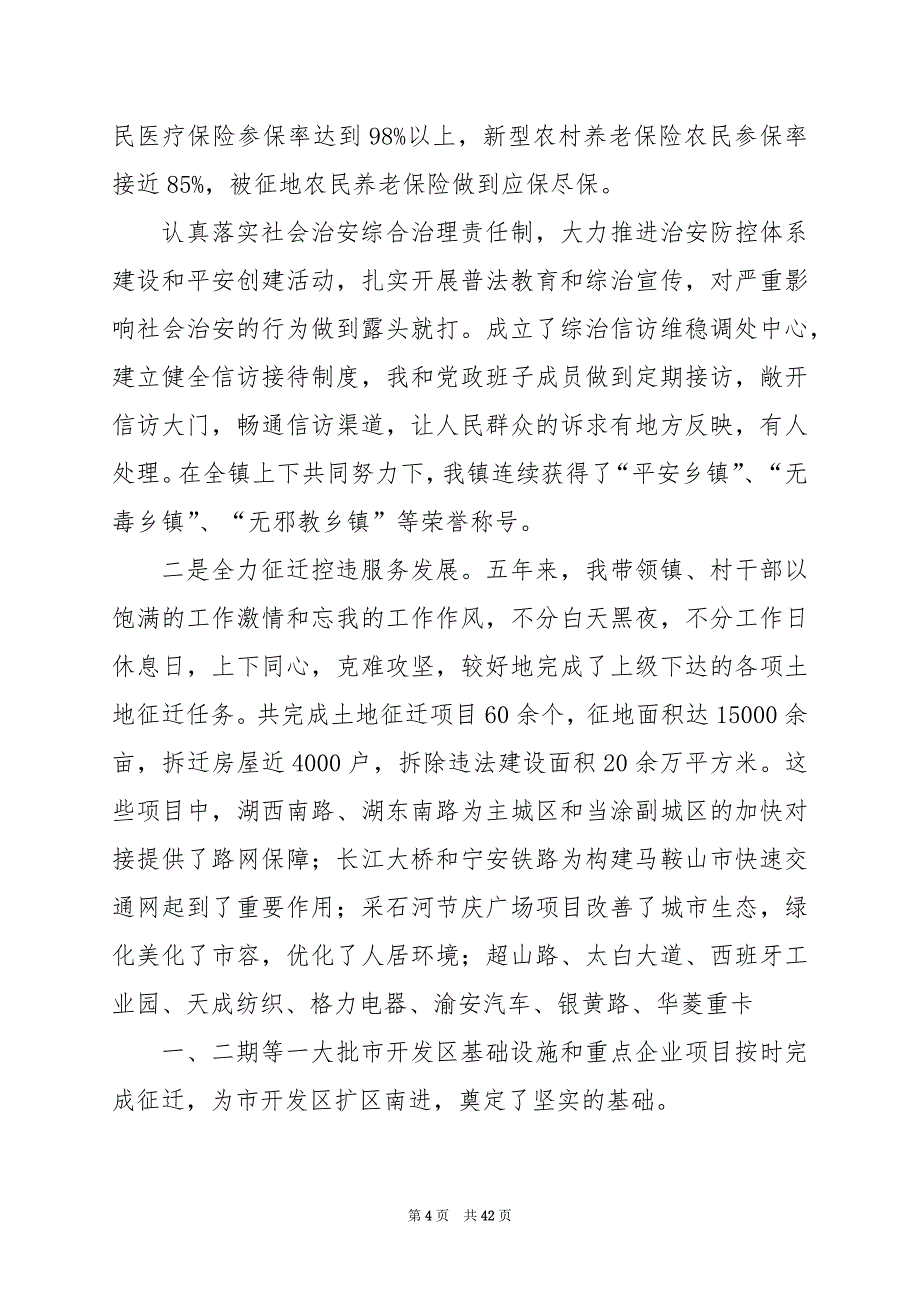 民医疗保险参保率达到 98%以上，新型农村养老保险农民参保率
接近 85%，被征地农民养老保险做到应保尽保。
认真落实社会治安综合治理责任制，大力推进治安防控体系
建设和平安创建活动，扎实开展普法教育和综治宣传，对严重影
响社会治安的行为做到露头就打。成立了综治信访维稳调处中心，
建立健全信访接待制度，我和党政班子成员做到定期接访，敞开
信访大门，畅通信访渠道，让人民群众的诉求有地方反映，有人
处理。在全镇上下共同努力下，我镇连续获得了“平安乡镇”、“无
毒乡镇”、“无邪教乡镇”等荣誉称号。
二是全力征迁控违服务发展。五年来，我带领镇、村干部以
饱满的工作激情和忘我的工作作风，不分白天黑夜，不分工作日
休息日，上下同心，克难攻坚，较好地完成了上级下达的各项土
地征迁任务。共完成土地征迁项目 60 余个，征地面积达 15000 余
亩，拆迁房屋近 4000 户，拆除违法建设面积 20 余万平方米。这
些项目中，湖西南路、湖东南路为主城区和当涂副城区的加快对
接提供了路网保障；长江大桥和宁安铁路为构建马鞍山市快速交
通网起到了重要作用；采石河节庆广场项目改善了城市生态，绿
化美化了市容，优化了人居环境；超山路、太白大道、西班牙工
业园、天成纺织、格力电器、渝安汽车、银黄路、华菱重卡
一、二期等一大批市开发区基础设施和重点企业项目按时完
成征迁，为市开发区扩区南进，奠定了坚实的基础。
第 4 页 共 42 页